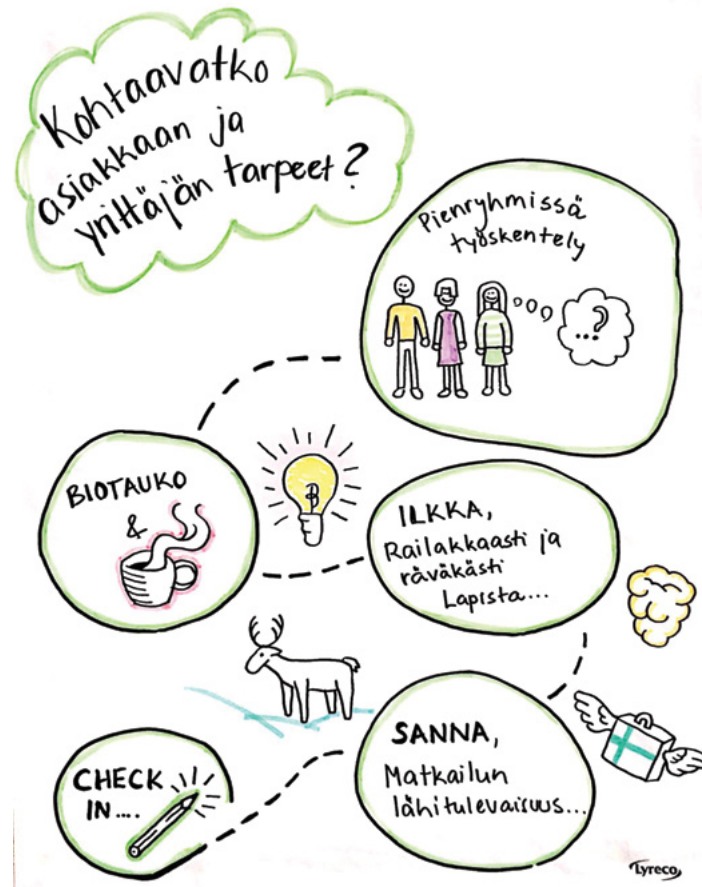 Kohtaavatko
asiakkaan ja
yrittäjän tarpeet?
Pienryhmissä
työskentely
...?
BIOTAUKO
&
ILKKA,
Railakkaasti ja
räväkästi
Lapista...
SANNA,
Matkailun
lähitulevaisuus...
CHECK
IN....
Lyreco